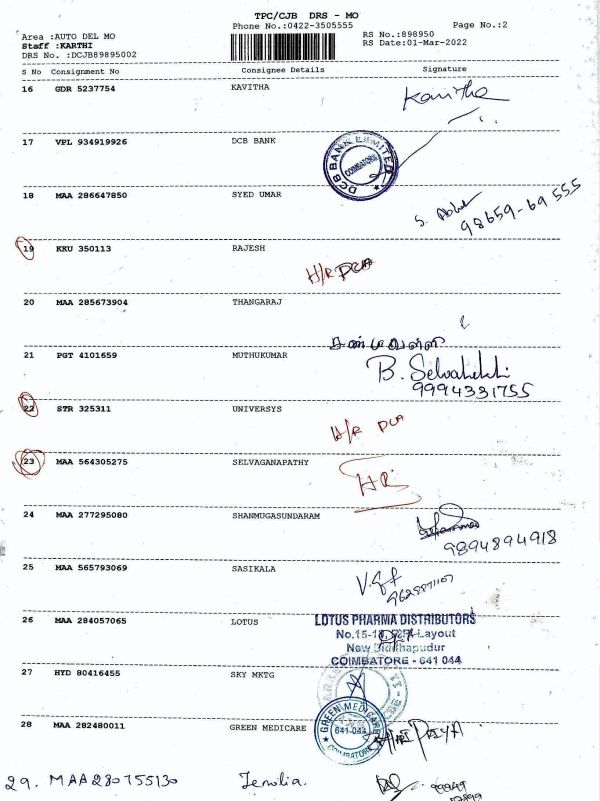 TPC/CJB DRS - MO
Phone No.:0422-3505555
Page No.:2
Area :AUTO DEL MO
Staff :KARTHI
DRS No. :DCJB89895002
RS No.:898950
RS Date:01-Mar-2022
S No Consignment No Consignee Details Signature
16 GDR 5237754 KAVITHA Kavitha
17 VPL 934919926 DCB BANK
DCB BANK LIMITED
COIMBATORE
18 MAA 286647850 SYED UMAR
98659-69555
19 KKU 350113 RAJESH
20 MAA 285673904 THANGARAJ
21 PGT 4101659 MUTHUKUMAR
9994331755
22 STR 325311 UNIVERSYS
23 MAA 564305275 SELVAGANAPATHY
24 MAA 277295080 SHANMUGASUNDARAM
9894894918
25 MAA 565793069 SASIKALA
26 MAA 284057065 LOTUS
LOTUS PHARMA DISTRIBUTORS
Layout
New Siddhapudur
COIMBATORE - 641 044
27 HYD 80416455 SKY MKTG
28 MAA 282480011 GREEN MEDICARE
GREEN MEDICARE
641-044
COIMBATORE
HARI PRIYA
29. MAA280755130 Jenilia.